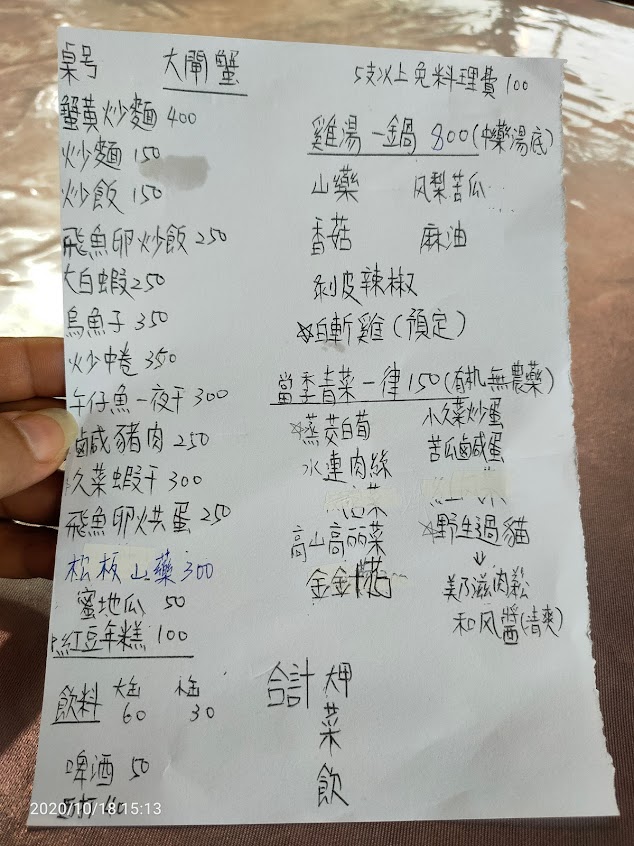 桌号 大閘蟹 5支以上免料理費100
蟹黃炒麵 400
炒麵 150
炒飯 150
飛魚卵炒飯 250
大白蝦 250
烏魚子 350
炒中卷 350
午仔魚一夜干 300
鹹豬肉 250
久菜蝦干 300
飛魚卵烘蛋 250
松板山藥 300
蜜地瓜 50
紅豆年糕 100
飲料 大缶 60 禾缶 30
啤酒 50
雞湯一鍋 800(中藥湯底)
山藥 风梨苦瓜
香菇 麻油
剝皮辣椒
☆白斬雞(預定)
當季青菜一律150(有机無農藥)
☆蒸茭白荀 小久菜炒蛋
水連肉絲 苦瓜鹹蛋
菜
高山高丽菜 ☆野生過貓
金針花 ↓
美乃滋肉松
和风醬(清爽)
合計 大甲
菜
飲
2020/10/18 15:13